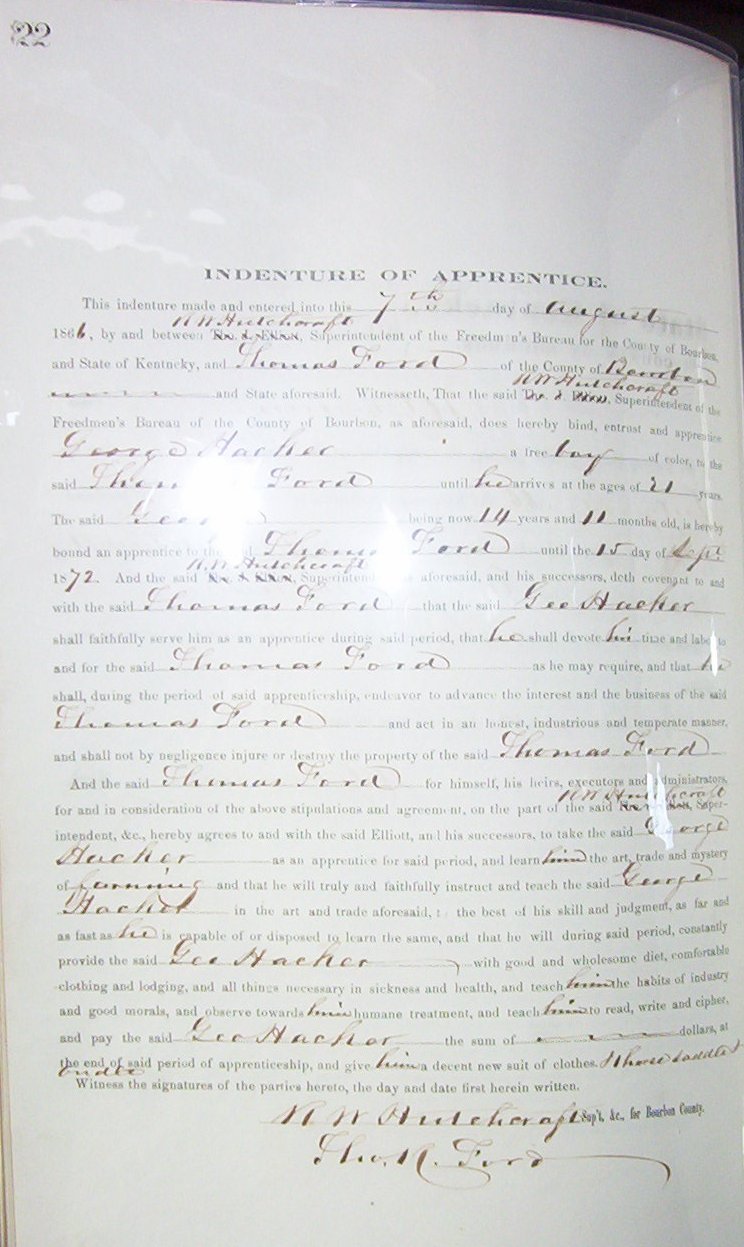 22
INDENTURE OF APPRENTICE.
This indenture made and entered into this 7th day of august
1866, by and between R W Hutchcraft Superintendent of the Freedmen's Bureau for the County of Bourbon,
and State of Kentucky, and Thomas Ford of the County of Bourbon
and State aforesaid. Witnesseth, That the said R W Hutchcraft Superintendent of the
Freedmen's Bureau of the County of Bourbon, as aforesaid, does hereby bind, entrust and apprentice
George Hacker a free boy of color, to the
said Ford until he arrives at the ages of 21 years.
The said being now 14 years and 11 months old, is hereby
bound an apprentice to Ford until the 15 day of Sept
1872. And the said R W Hutchcraft aforesaid, and his successors, doth covenant to and
with the said Thomas Ford that the said Geo Hacker
shall faithfully serve him as an apprentice during said period, that he shall devote his time and labor to
and for the said Thomas Ford as he may require, and that he
shall, during the period of said apprenticeship, endeavor to advance the interest and the business of the said
Thomas Ford and act in an honest, industrious and temperate manner,
and shall not by negligence injure or destroy the property of the said Thomas Ford
And the said Thomas Ford for himself, his heirs, executors and administrators,
for and in consideration of the above stipulations and agreement, on the part of the said R W Hutchcraft Super-
intendent, &c., hereby agrees to and with the said Elliott, and his successors, to take the said George
Hacker as an apprentice for said period, and learn him the art, trade and mystery
of farming and that he will truly and faithfully instruct and teach the said George
Hacker in the art and trade aforesaid, to the best of his skill and judgment, as far and
as fast as he is capable of or disposed to learn the same, and that he will during said period, constantly
provide the said Geo Hacker with good and wholesome diet, comfortable
clothing and lodging, and all things necessary in sickness and health, and teach him the habits of industry
and good morals, and observe towards him humane treatment, and teach him to read, write and cipher,
and pay the said Geo Hacker the sum of dollars, at
the end of said period of apprenticeship, and give him a decent new suit of clothes. & horse saddle &
bridle
Witness the signatures of the parties hereto, the day and date first herein written.
R W Hutchcraft Sup't, &c., for Bourbon County.
Tho. N. Ford